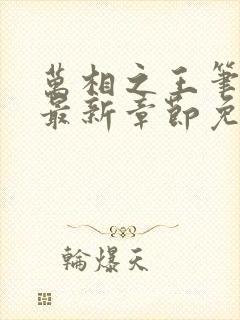 萬相之王筆
最新章節免
輪爆天